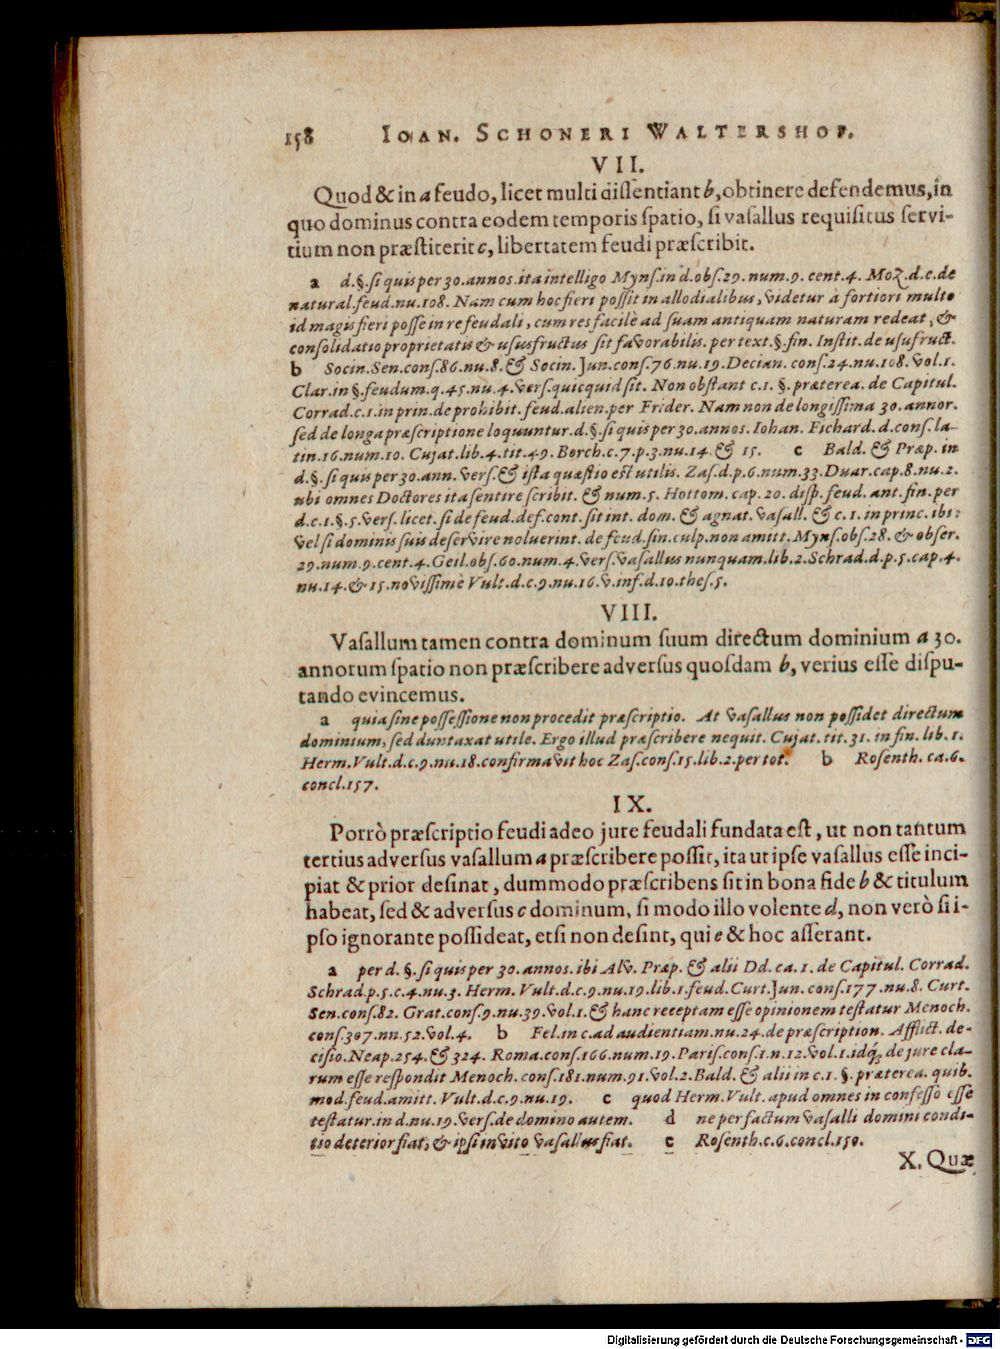 158 IOAN. SCHONERI WALTERSHOF.
VII.
Quod & in a feudo, licet multi diſſentiant b, obtinere defendemus, in
quo dominus contra eodem temporis ſpatio, ſi vaſallus requiſitus ſervi-
tium non præſtiterit c, libertatem feudi præſcribit.
a d. §. ſi quis per 30. annos. ita intelligo Mynſ. in d. obſ. 29. num. 9. cent. 4. Moz. d. c. de
natural. feud. nu. 108. Nam cum hoc fieri poſſit in allodialibus, videtur à fortiori multo
id magis fieri poſſe in re feudali, cum res facilè ad ſuam antiquam naturam redeat, &
conſolidatio proprietatis & uſusfructus ſit favorabilis. per text. §. fin. Inſtit. de uſufruct.
b Socin. Sen. conſ. 86. nu. 8. & Socin. Jun. conſ. 76. nu. 19. Decian. conſ. 24. nu. 108. vol. 1.
Clar. in §. feudum. q. 45. nu. 4. verſ. quicquid ſit. Non obſtant c. 1. §. præterea. de Capitul.
Corrad. c. 1. in prin. de prohibit. feud. alien. per Frider. Nam non de longiſſima 30. annor.
ſed de longa præſcriptione loquuntur. d. §. ſi quis per 30. annos. Iohan. Fichard. d. conſ. la-
tin. 16. num. 10. Cujat. lib. 4. tit. 49. Borch. c. 7. p. 3. nu. 14. & 15. c Bald. & Præp. in
d. §. ſi quis per 30. ann. verſ. & iſta quæſtio eſt utilis. Zaſ. d. p. 6. num. 33. Duar. cap. 8. nu. 2.
ubi omnes Doctores ita ſentire ſcribit. & num. 5. Hottom. cap. 20. diſp. feud. ant. fin. per
d. c. 1. §. 5. verſ. licet. ſi de feud. def. cont. ſit int. dom. & agnat. vaſall. & c. 1. in princ. ibi:
vel ſi dominis ſuis deſervire noluerint. de feud. ſin. culp. non amitt. Mynſ. obſ. 28. & obſer.
29. num. 9. cent. 4. Geil. obſ. 60. num. 4. verſ. vaſallus nunquam. lib. 2. Schrad. d. p. 5. cap. 4.
nu. 14. & 15. noviſſimè Vult. d. c. 9. nu. 16. v. inf. d. 10. theſ. 5.
VIII.
Vaſallum tamen contra dominum ſuum directum dominium a 30.
annorum ſpatio non præſcribere adverſus quoſdam b, verius eſſe diſpu-
tando evincemus.
a quia ſine poſſeſſione non procedit præſcriptio. At vaſallus non poſſidet directum
dominium, ſed duntaxat utile. Ergo illud præſcribere nequit. Cujat. tit. 31. in fin. lib. 1.
Herm. Vult. d. c. 9. nu. 18. confirmavit hoc Zaſ. conſ. 15. lib. 2. per tot. b Roſenth. ca. 6.
concl. 157.
IX.
Porrò præſcriptio feudi adeo jure feudali fundata eſt, ut non tantum
tertius adverſus vaſallum a præſcribere poſſit, ita ut ipſe vaſallus eſſe inci-
piat & prior deſinat, dummodo præſcribens ſit in bona fide b & titulum
habeat, ſed & adverſus c dominum, ſi modo illo volente d, non verò ſi i-
pſo ignorante poſſideat, etſi non deſint, qui e & hoc aſſerant.
a per d. §. ſi quis per 30. annos. ibi Alv. Præp. & alii Dd. ca. 1. de Capitul. Corrad.
Schrad. p. 5. c. 4. nu. 3. Herm. Vult. d. c. 9. nu. 19. lib. 1. feud. Curt. Jun. conſ. 177. nu. 8. Curt.
Sen. conſ. 82. Grat. conſ. 9. nu. 39. vol. 1. & hanc receptam eſſe opinionem teſtatur Menoch.
conſ. 307. nn. 52. vol. 4. b Fel. in c. ad audientiam. nu. 24. de præſcription. Afflict. de-
ciſio. Neap. 254. & 324. Roma. conſ. 166. num. 19. Pariſ. conſ. 1. n. 12. vol. 1. idq; de jure cla-
rum eſſe reſpondit Menoch. conſ. 181. num. 91. vol. 2. Bald. & alii in c. 1. §. præterea. quib.
mod. feud. amitt. Vult. d. c. 9. nu. 19. c quod Herm. Vult. apud omnes in confeſſo eſſe
teſtatur. in d. nu. 19. verſ. de domino autem. d ne per factum vaſalli domini condi-
tio deterior fiat, & ipſi invito vaſallus fiat. e Roſenth. c. 6. concl. 150.
X. Quæ
Digitalisierung gefördert durch die Deutsche Forschungsgemeinschaft - DFG